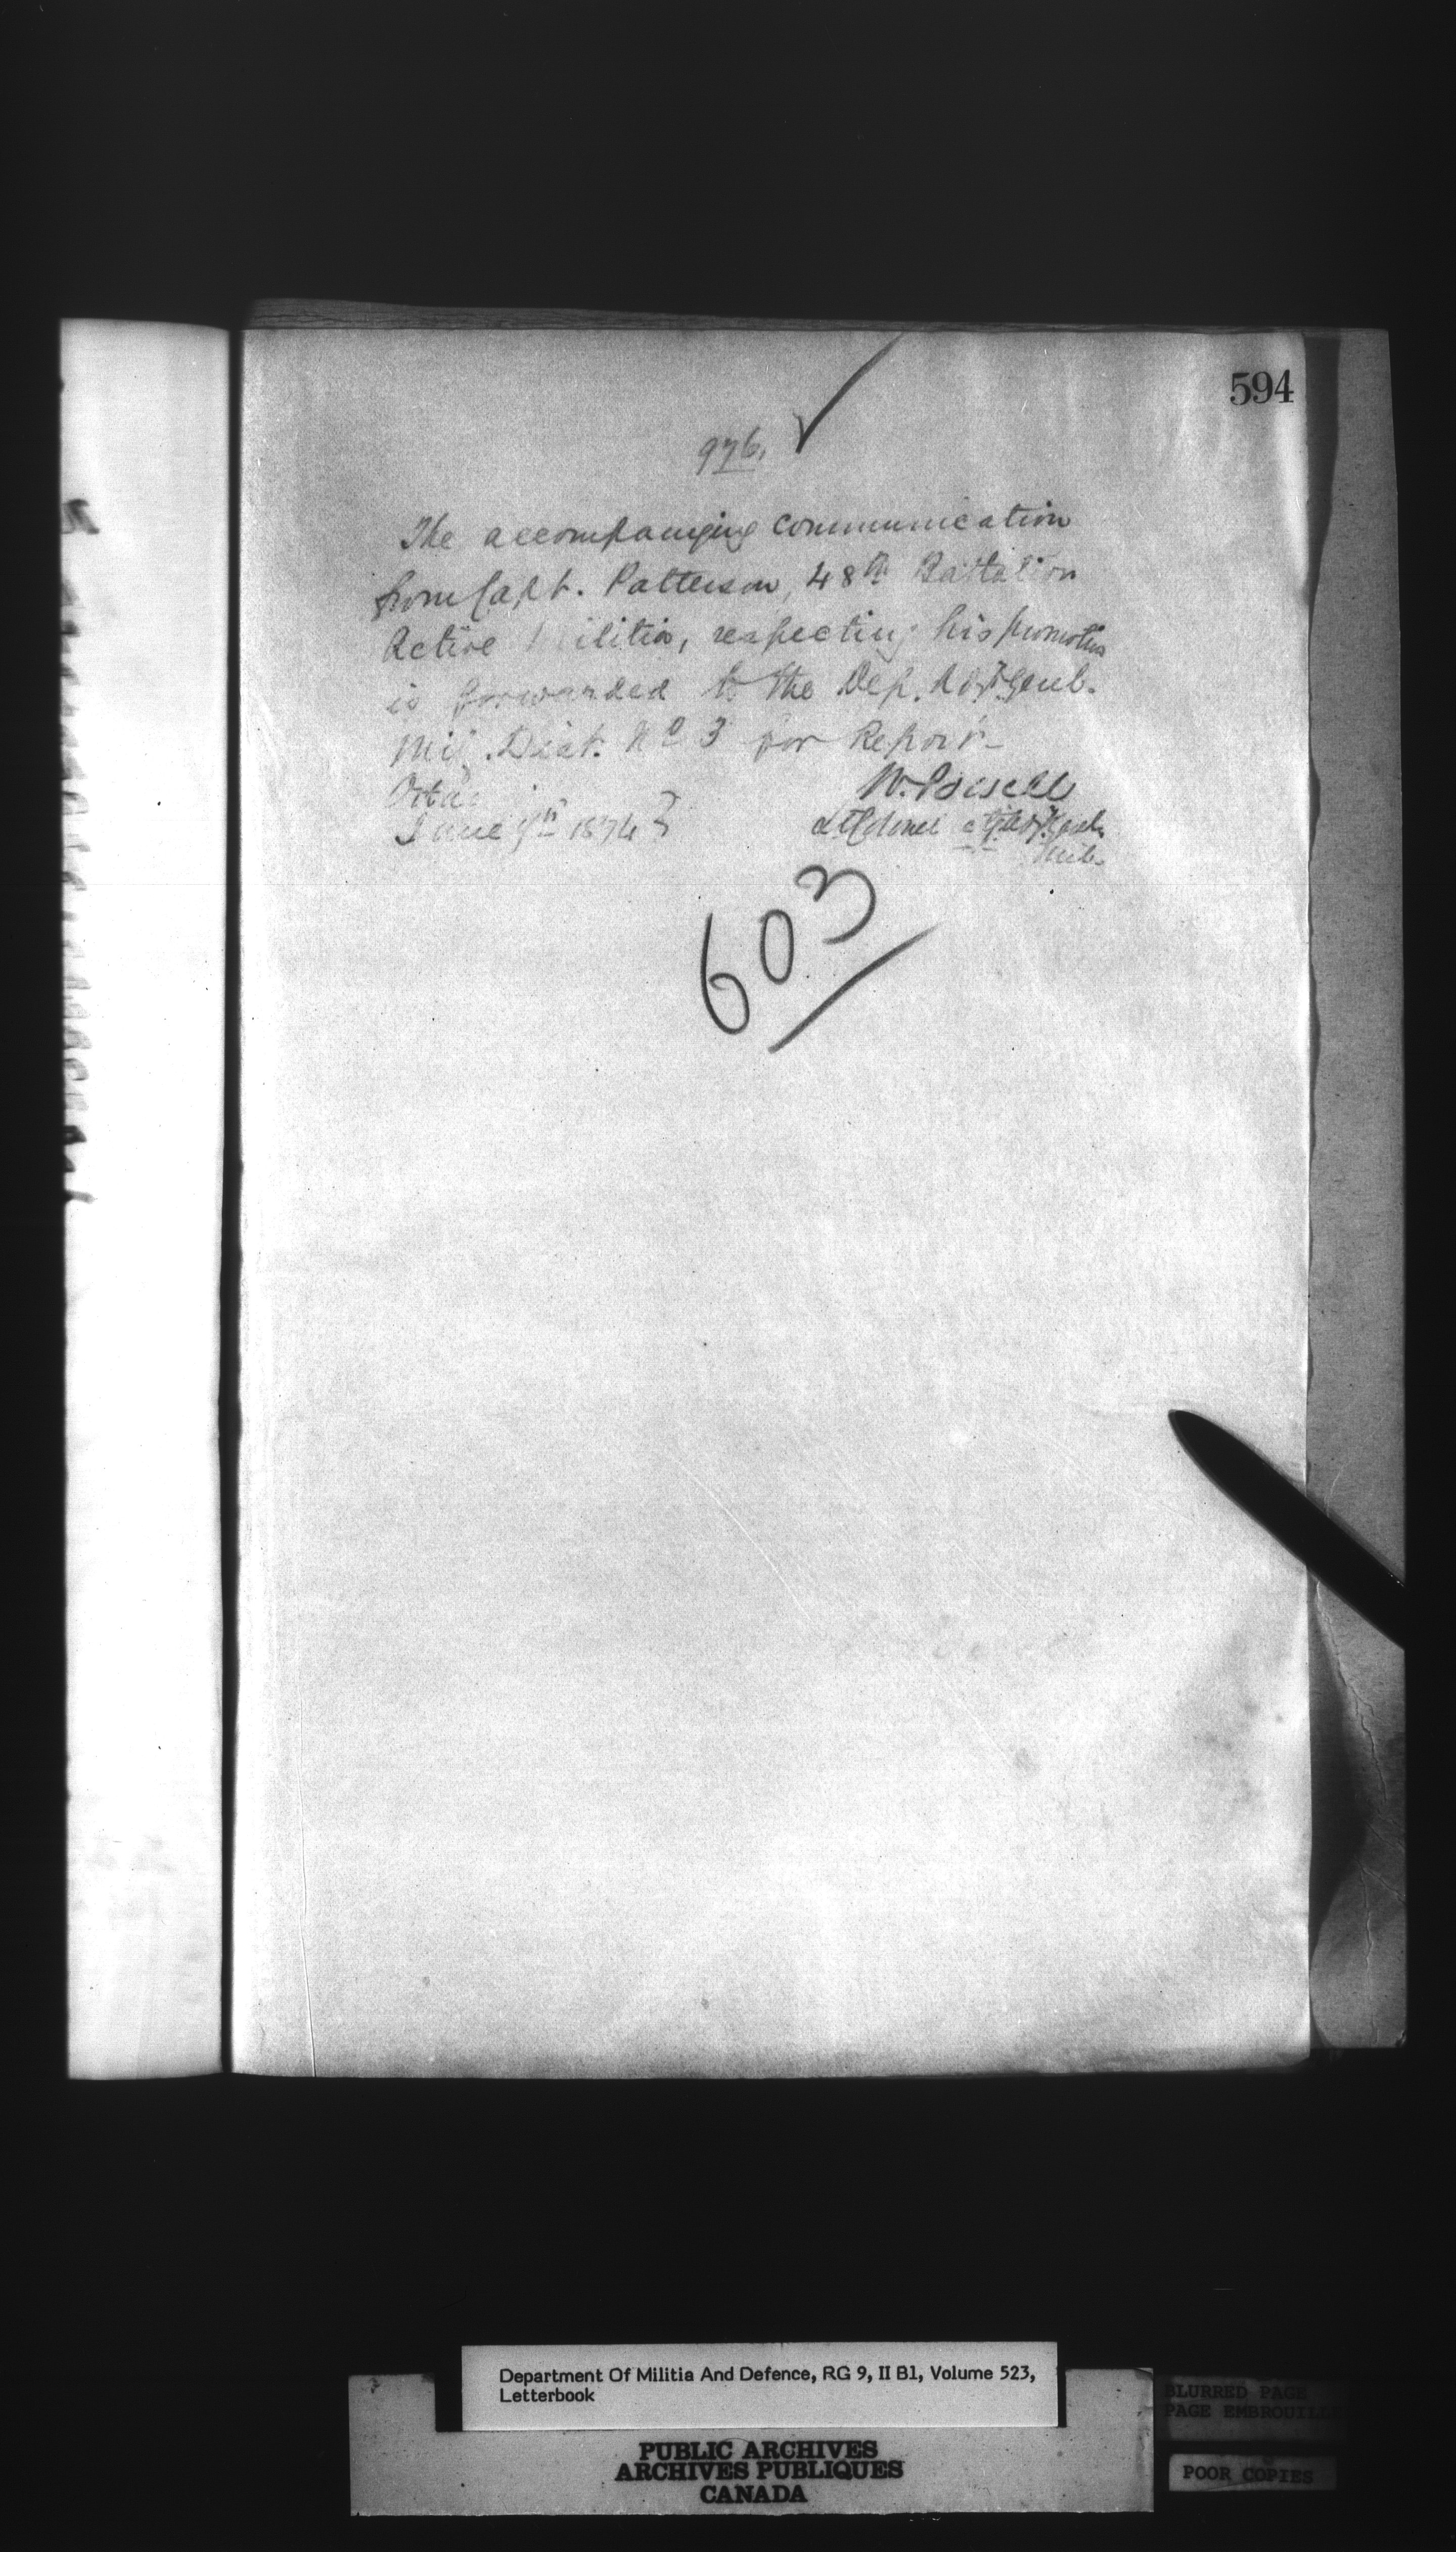 594
976.
The accompanying communication
from Capt. Patterson, 48th Battalion
Active Militia, respecting his promotion
is forwarded to the Dep. Adjt. Genl.
Mil. Dist. No 3 for Report-
Ottaw
June 9th 1874 }
W. Powell
Lt Colonel Adjt Genl.
Mil.
603
Department Of Militia And Defence, RG 9, II B1, Volume 523,
Letterbook
PUBLIC ARCHIVES
ARCHIVES PUBLIQUES
CANADA
BLURRED PAGE
PAGE EMBROUILL
POOR COPIES